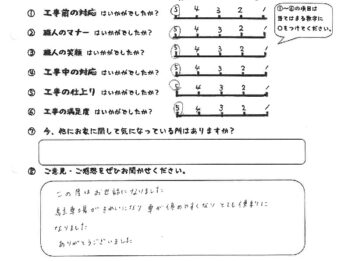 ① 工事前の対応 はいかがでしたか? 5 4 3 2 1
② 職人のマナー はいかがでしたか? 5 4 3 2 1
③ 職人の笑顔 はいかがでしたか? 5 4 3 2 1
④ 工事中の対応 はいかがでしたか? 5 4 3 2 1
⑤ 工事の仕上り はいかがでしたか? 5 4 3 2 1
⑥ 工事の満足度 はいかがでしたか? 5 4 3 2 1
①〜⑥の項目は
当てはまる数字に
○をつけてください。
⑦ 今、他にお家に関して気になっている所はありますか?
⑧ ご意見・ご感想をぜひお聞かせください。
この度はお世話になりました
駐車場がきれいになり 車が停めやすくなり とても便利に
なりました
ありがとうございました